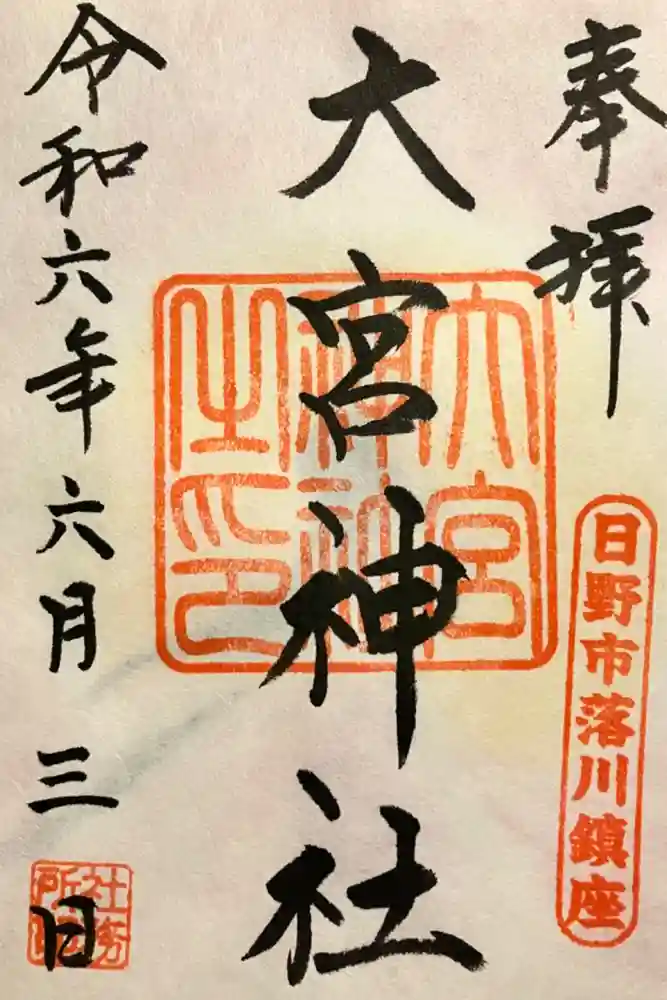 奉拝
日野市落川鎮座
大宮神社
大宮神社之印
令和六年六月三日